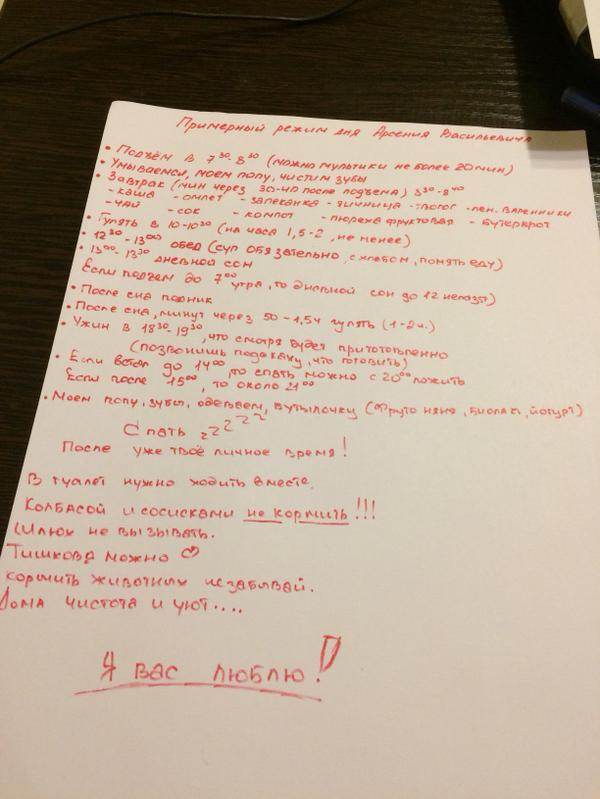 Примерный режим дня Арсения Васильевича
• Подъём в 7³⁰-8³⁰ (можно мультики не более 20 мин)
• Умываемся, моем попу, чистим зубы
• Завтрак (мин через 30-40 после подъема) 8³⁰-8⁴⁰
-каша -омлет -запеканка -яичница -творог -лен. вареники
-чай -сок -компот -пюрешка фруктовая -бутерброт
• Гулять в 10-10³⁰ (на часа 1,5-2, не менее)
• 12³⁰-13⁰⁰ обед (суп обязательно, с хлебом, понять еду)
• 13⁰⁰-13³⁰ дневной сон
Если подъем до 7⁰⁰ утра, то дневной сон до 12
• После сна полник
• После сна, минут через 50-1,5ч гулять (1-2ч.)
• Ужин в 18³⁰-19³⁰, что смотря будет приготовленно
(позвонишь подскажу, что готовить)
• Если встал до 14⁰⁰, то спать можно с 20⁰⁰ ложить
Если после 15⁰⁰, то около 21⁰⁰
• Моем попу, зубы, одеваем, бутылочку (Фруто няня, биолакт, йогурт)
Спать zzzzz
После уже твоё личное время!
В туалет нужно ходить вместе.
Колбасой и сосисками не кормить!!!
Шлюх не вызывать.
Тишкова можно ♡
Кормить животных незабывай.
Дома чистота и уют....
Я вас люблю!